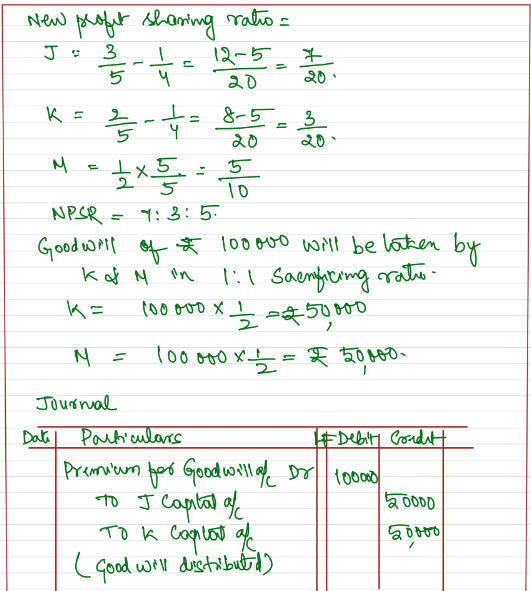 New profit sharing ratio =
J = 3/5 - 1/4 = 12-5/20 = 7/20.
K = 2/5 - 1/4 = 8-5/20 = 3/20.
M = 1/2 × 5/5 = 5/10
NPSR = 7:3:5.
Goodwill of ₹ 100000 will be taken by
K & M in 1:1 Sacrificing ratio.
K = 100000 × 1/2 = ₹ 50,000
M = 100000 × 1/2 = ₹ 50,000.
Journal
Date Particulars LF Debit Credit
Premium for Goodwill a/c Dr 100000
To J Capital a/c 50000
To K Capital a/c 50,000
(Good will distributed)